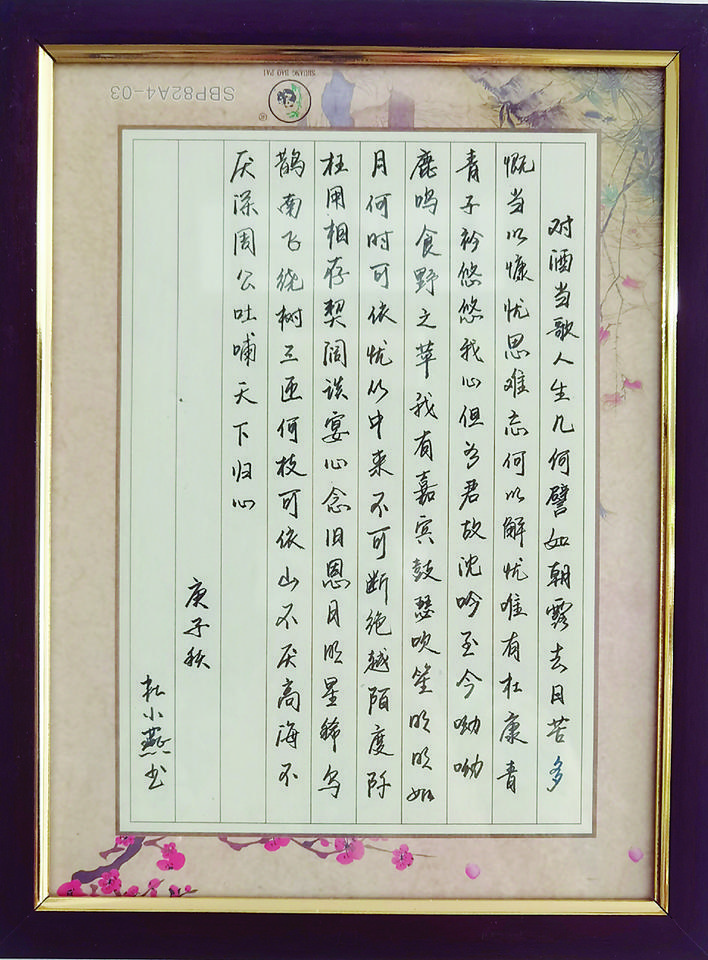 SHUANG BAO PAI
SBP82A4-03
对酒当歌人生几何譬如朝露去日苦多
慨当以慷忧思难忘何以解忧唯有杜康青
青子衿悠悠我心但为君故沈吟至今呦呦
鹿鸣食野之苹我有嘉宾鼓瑟吹笙明明如
月何时可依忧从中来不可断绝越陌度阡
枉用相存契阔谈宴心念旧恩月明星稀乌
鹊南飞绕树三匝何枝可依山不厌高海不
厌深周公吐哺天下归心
庚子秋
杜小燕书